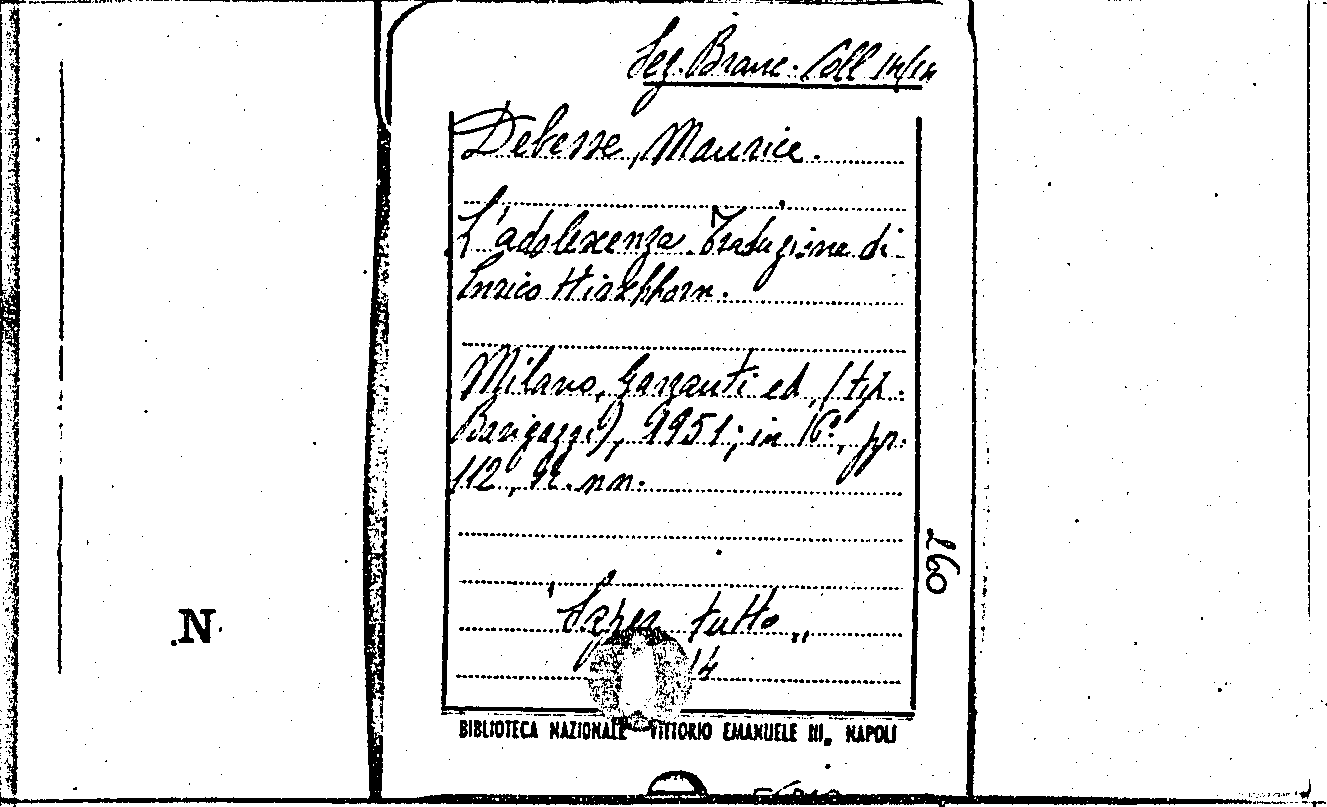 Sez. Branc. Coll 14/14
Debesse, Maurice.
L'adolescenza. Traduzione di
Enrico Hirschhorn.
Milano, Garzanti ed. (tip.
Barigazzi), 1951; in 16°, pp.
112, n. nn.
260
"Saper tutto"
14
N
BIBLIOTECA NAZIONALE VITTORIO EMANUELE III. NAPOLI